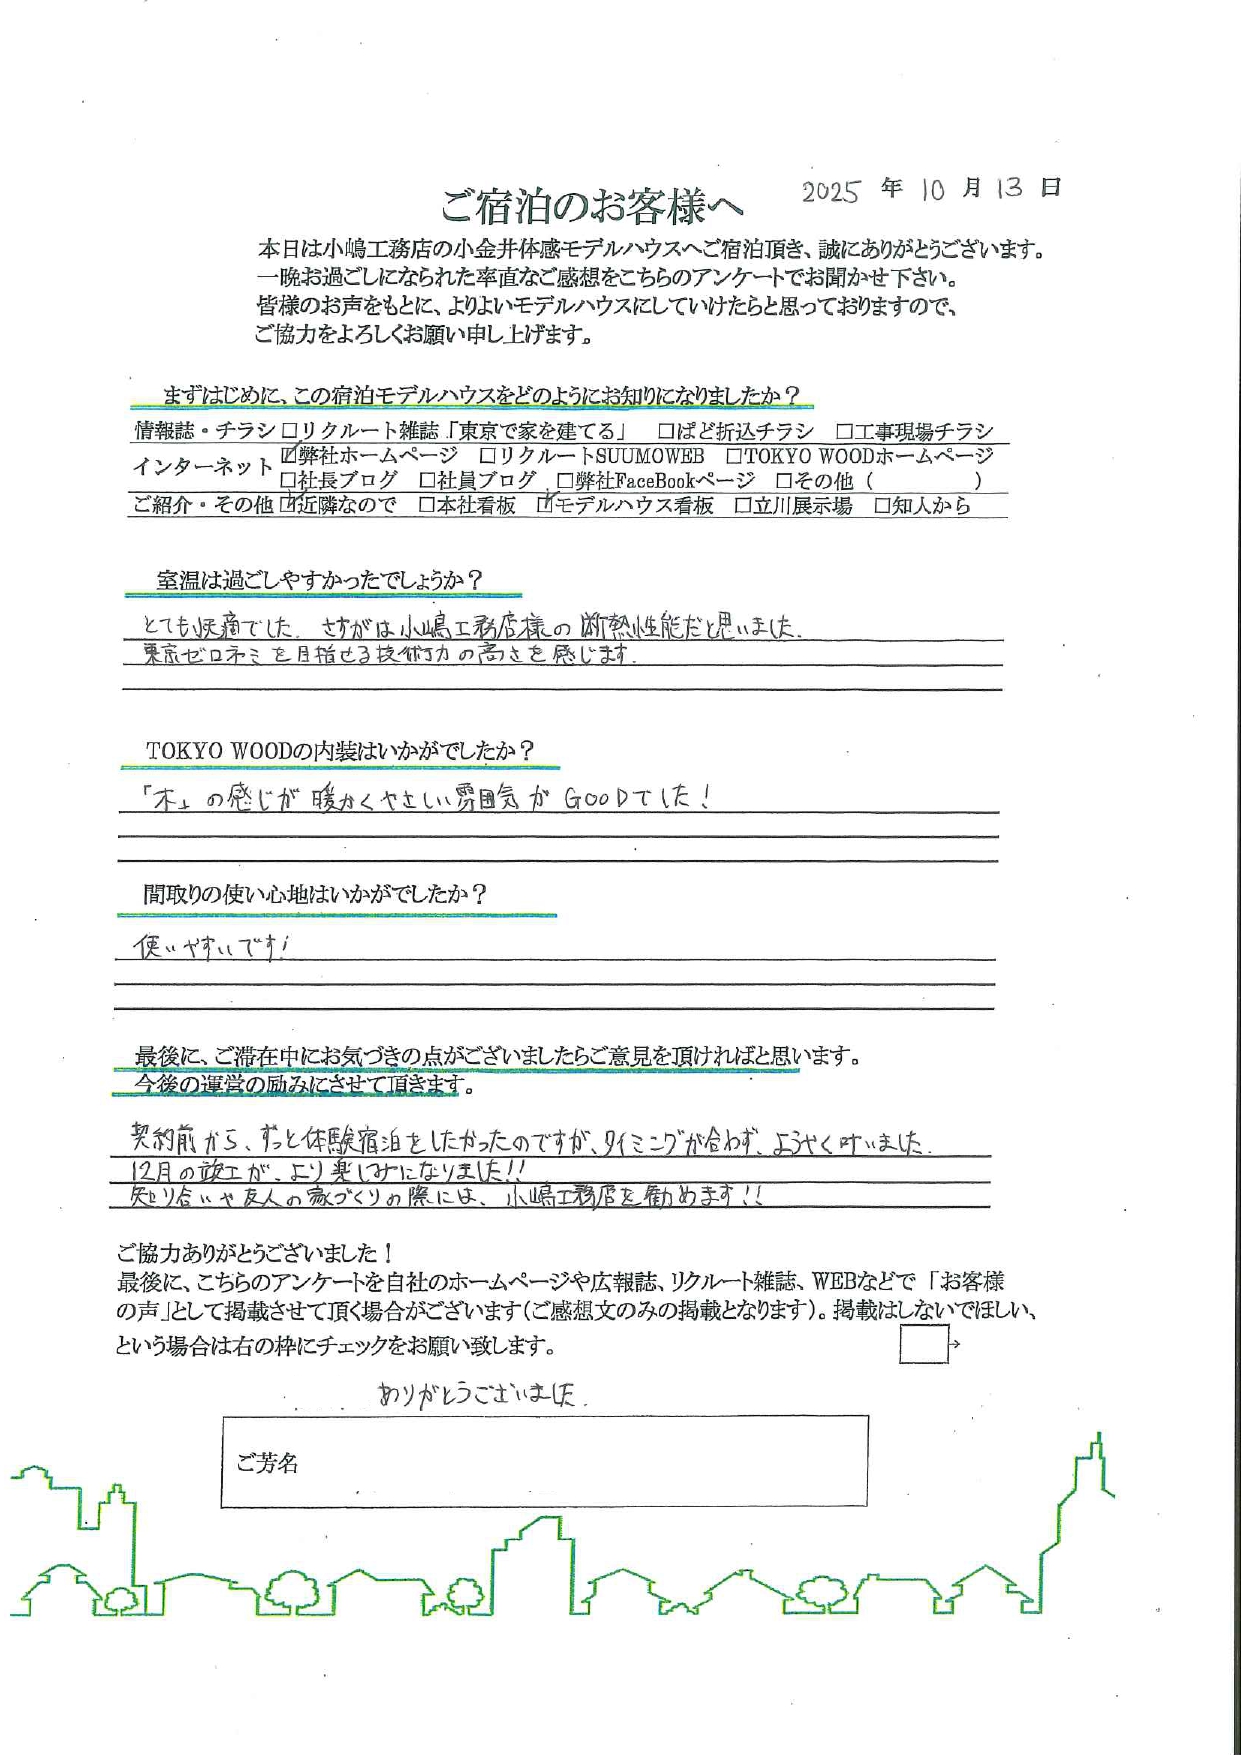 2025 年 10 月 13 日
ご宿泊のお客様へ
本日は小嶋工務店の小金井体感モデルハウスへご宿泊頂き、誠にありがとうございます。
一晩お過ごしになられた率直なご感想をこちらのアンケートでお聞かせ下さい。
皆様のお声をもとに、よりよいモデルハウスにしていけたらと思っておりますので、
ご協力をよろしくお願い申し上げます。
まずはじめに、この宿泊モデルハウスをどのようにお知りになりましたか？
情報誌・チラシ □リクルート雑誌「東京で家を建てる」 □ぱど折込チラシ □工事現場チラシ
インターネット ☑弊社ホームページ □リクルートSUUMOWEB □TOKYO WOODホームページ
□社長ブログ □社員ブログ □弊社FaceBookページ □その他（　　　　）
ご紹介・その他 ☑近隣なので □本社看板 ☑モデルハウス看板 □立川展示場 □知人から
室温は過ごしやすかったでしょうか？
とても快適でした. さすがは小嶋工務店様の断熱性能だと思いました.
東京ゼロネミを目指せる技術力の高さを感じます.
TOKYO WOODの内装はいかがでしたか？
「木」の感じが暖かくやさしい雰囲気がGOODでした！
間取りの使い心地はいかがでしたか？
使いやすいです！
最後に、ご滞在中にお気づきの点がございましたらご意見を頂ければと思います。
今後の運営の励みにさせて頂きます。
契約前から、ずっと体験宿泊をしたかったのですが、タイミングが合わず、ようやく叶いました.
12月の竣工が、より楽しみになりました!!
知り合いや友人の家づくりの際には、小嶋工務店を勧めます!!
ご協力ありがとうございました！
最後に、こちらのアンケートを自社のホームページや広報誌、リクルート雑誌、WEBなどで「お客様
の声」として掲載させて頂く場合がございます(ご感想文のみの掲載となります)。掲載はしないでほしい、
という場合は右の枠にチェックをお願い致します。 □→
ありがとうございました.
ご芳名